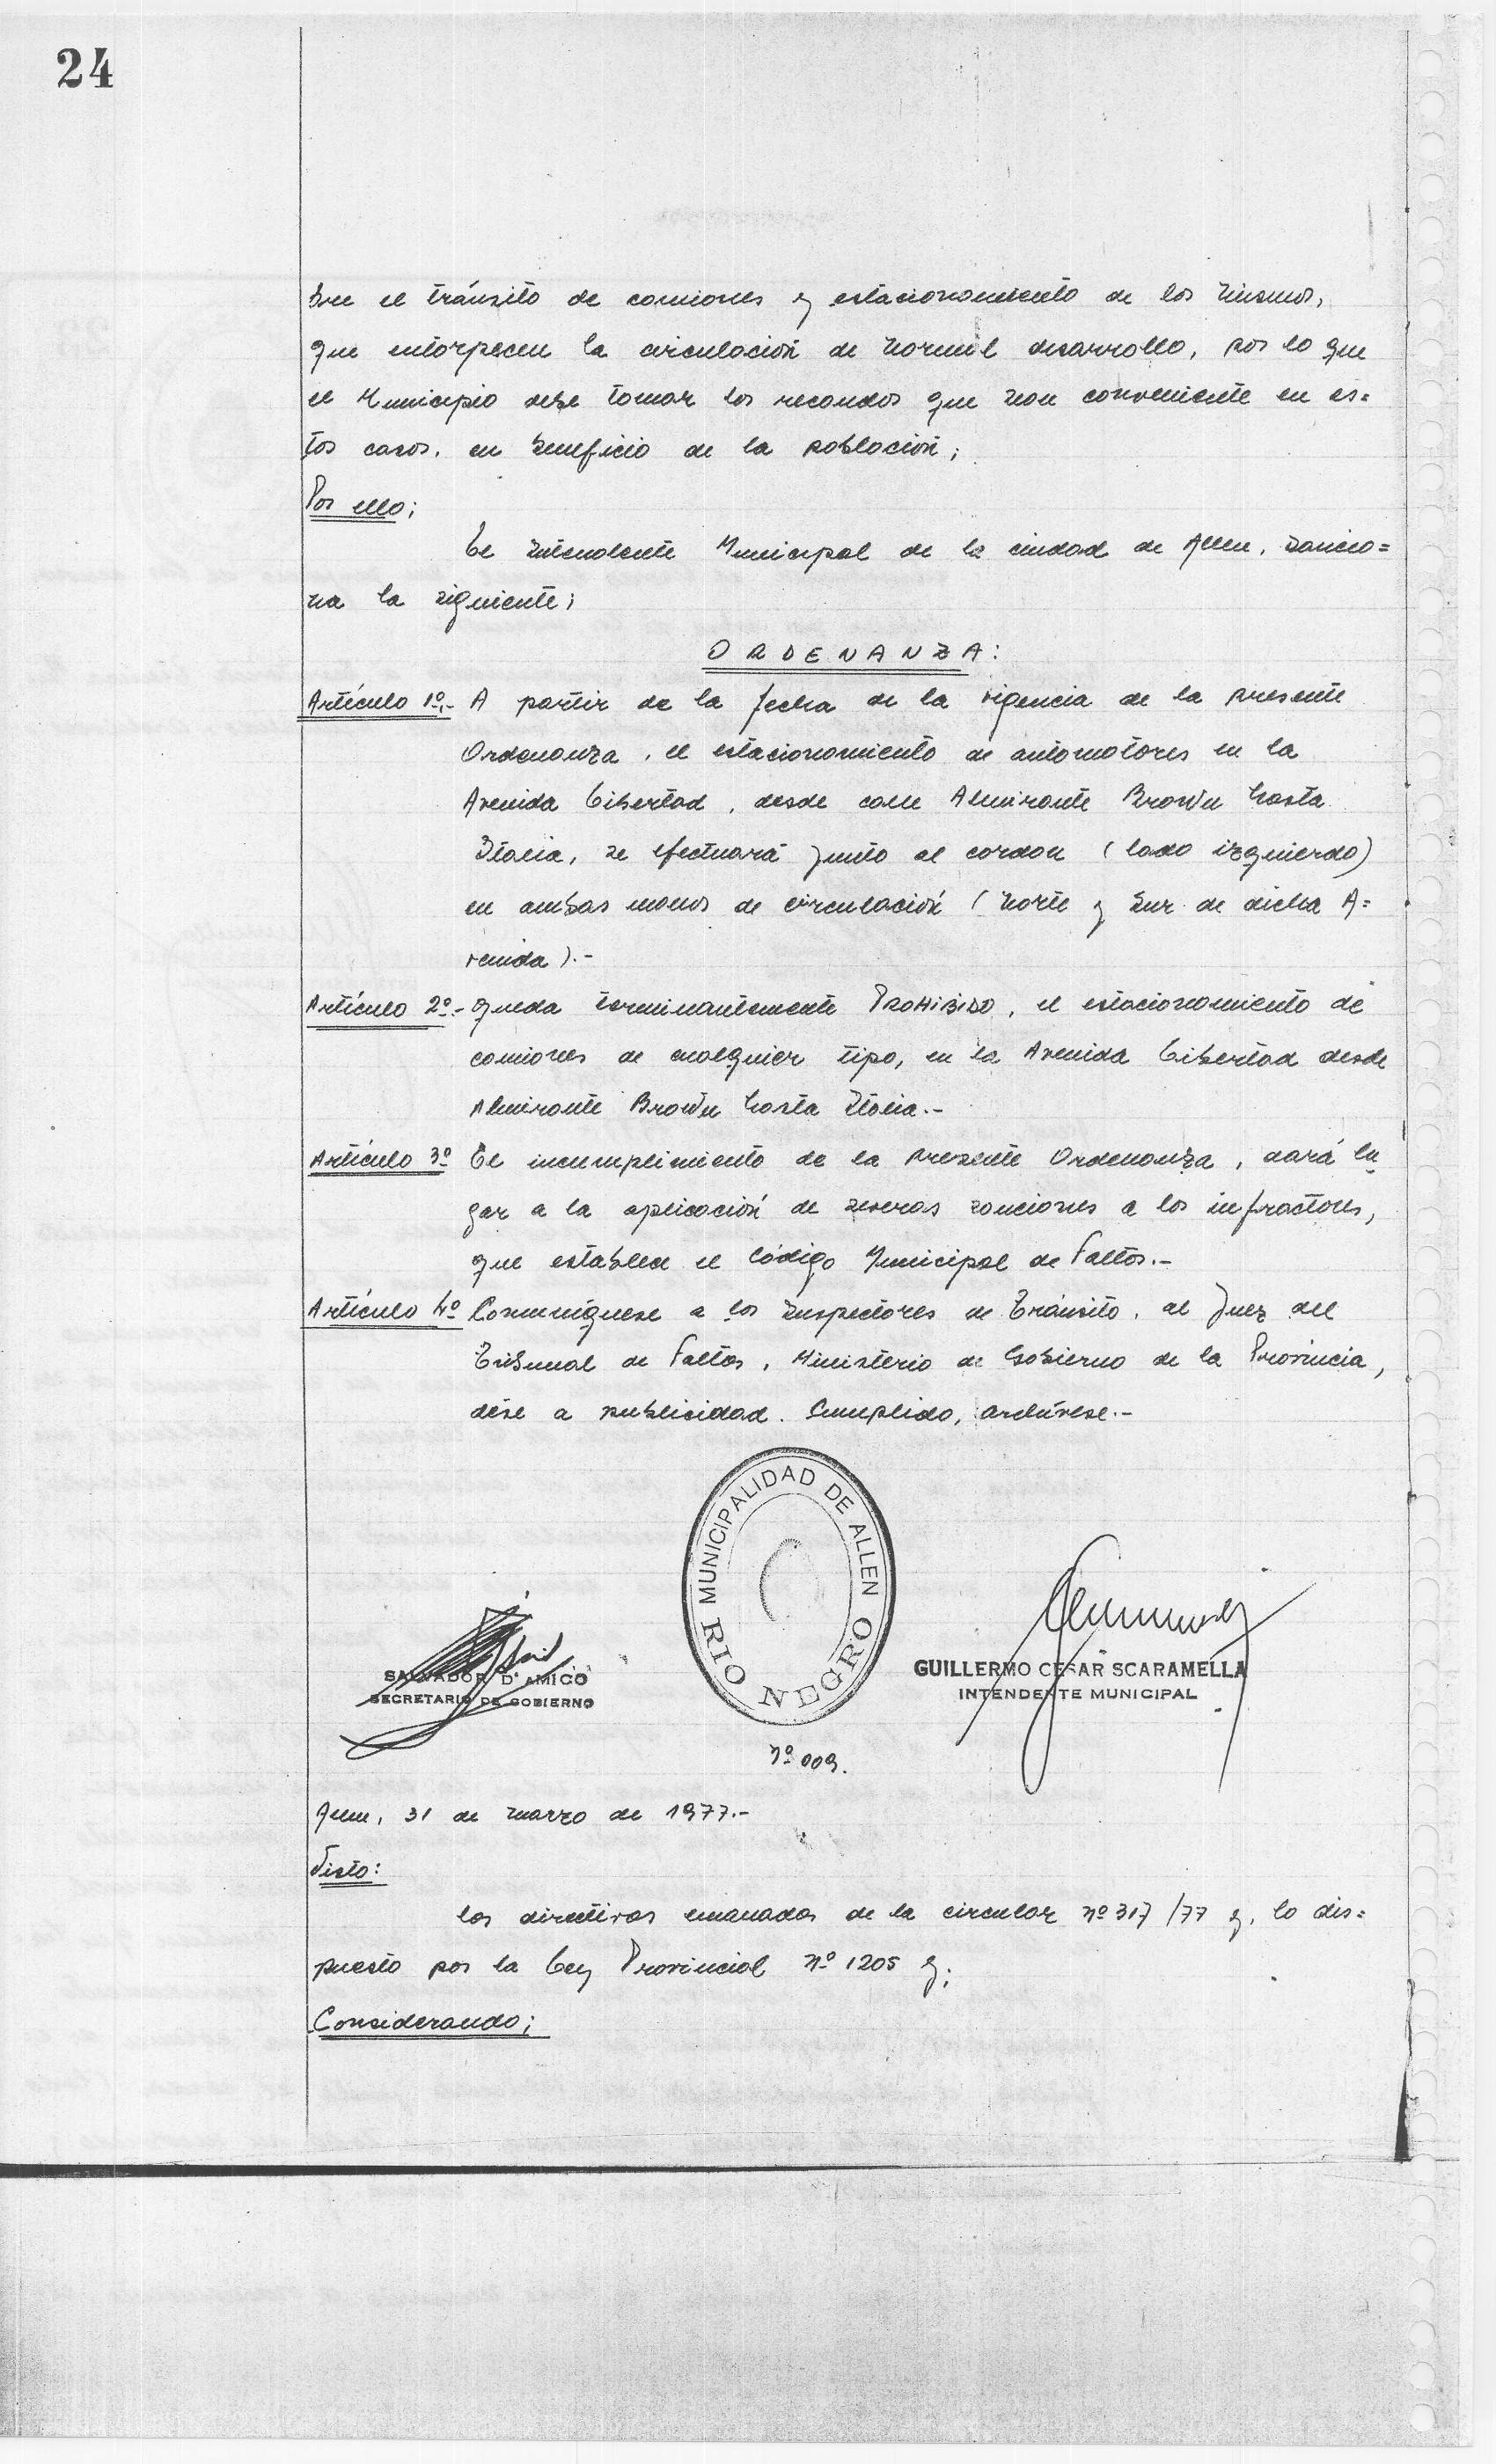 24
bre el tránsito de camiones y estacionamiento de los mismos,
que entorpecen la circulación de normal desarrollo, por lo que
el Municipio debe tomar los recaudos que sean conveniente en es=
tos casos, en beneficio de la población;
Por ello;
El Intendente Municipal de la ciudad de Allen, sancio=
na la siguiente;
ORDENANZA:
Artículo 1º.- A partir de la fecha de la vigencia de la presente
Ordenanza, el estacionamiento de automotores en la
Avenida Libertad, desde calle Almirante Brown hasta
Italia, se efectuará junto al cordon (lado izquierdo)
en ambas manos de circulación (Norte y Sur de dicha A=
venida).-
Artículo 2º.- Queda terminantemente PROHIBIDO, el estacionamiento de
camiones de cualquier tipo, en la Avenida Libertad desde
Almirante Brown hasta Italia.-
Artículo 3º El incumplimiento de la presente Ordenanza, dará lu
gar a la aplicación de severas sanciones a los infractores,
que establece el Código Municipal de Faltas.-
Artículo 4º Comuníquese a los Inspectores de Tránsito, al Juez del
Tribunal de Faltas, Ministerio de Gobierno de la Provincia,
dése a publicidad. Cumplido, archívese.-
MUNICIPALIDAD DE ALLEN
RIO NEGRO
SALVADOR D'AMICO
SECRETARIO DE GOBIERNO
GUILLERMO CESAR SCARAMELLA
INTENDENTE MUNICIPAL
Nº 009.
Allen, 31 de marzo de 1977.-
Visto:
las directivas emanadas de la circular nº 317/77 y, lo dis=
puesto por la Ley Provincial Nº 1205 y;
Considerando;